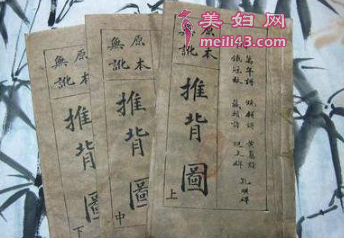 美妇网
meili43.com
原本
無訛
推背圖
上
萬年詩
黃蘗詩
原本
無訛
推背圖
中
原本
無訛
推背圖
下